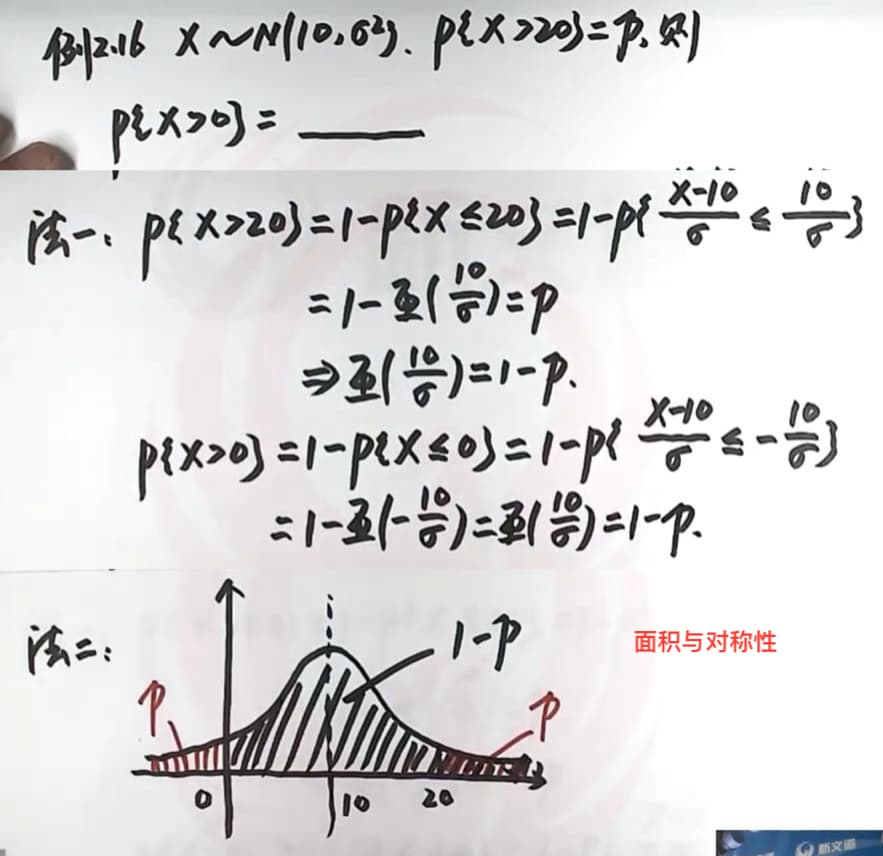 例2.16 X~N(10,σ²). P{X>20}=p,则
P{X>0}=
法一: P{X>20}=1-P{X≤20}=1-P{(X-10)/σ ≤ 10/σ}
=1-Φ(10/σ)=p
⇒Φ(10/σ)=1-p.
P{X>0}=1-P{X≤0}=1-P{(X-10)/σ ≤ -10/σ}
=1-Φ(-10/σ)=Φ(10/σ)=1-p.
法二:
面积与对称性
1-p
p
p
0 10 20
新文道